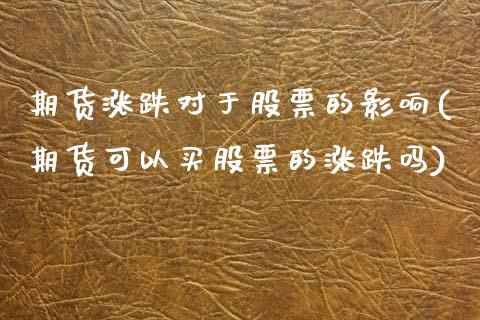 期货涨跌对于股票的影响(
期货可以买股票的涨跌吗)